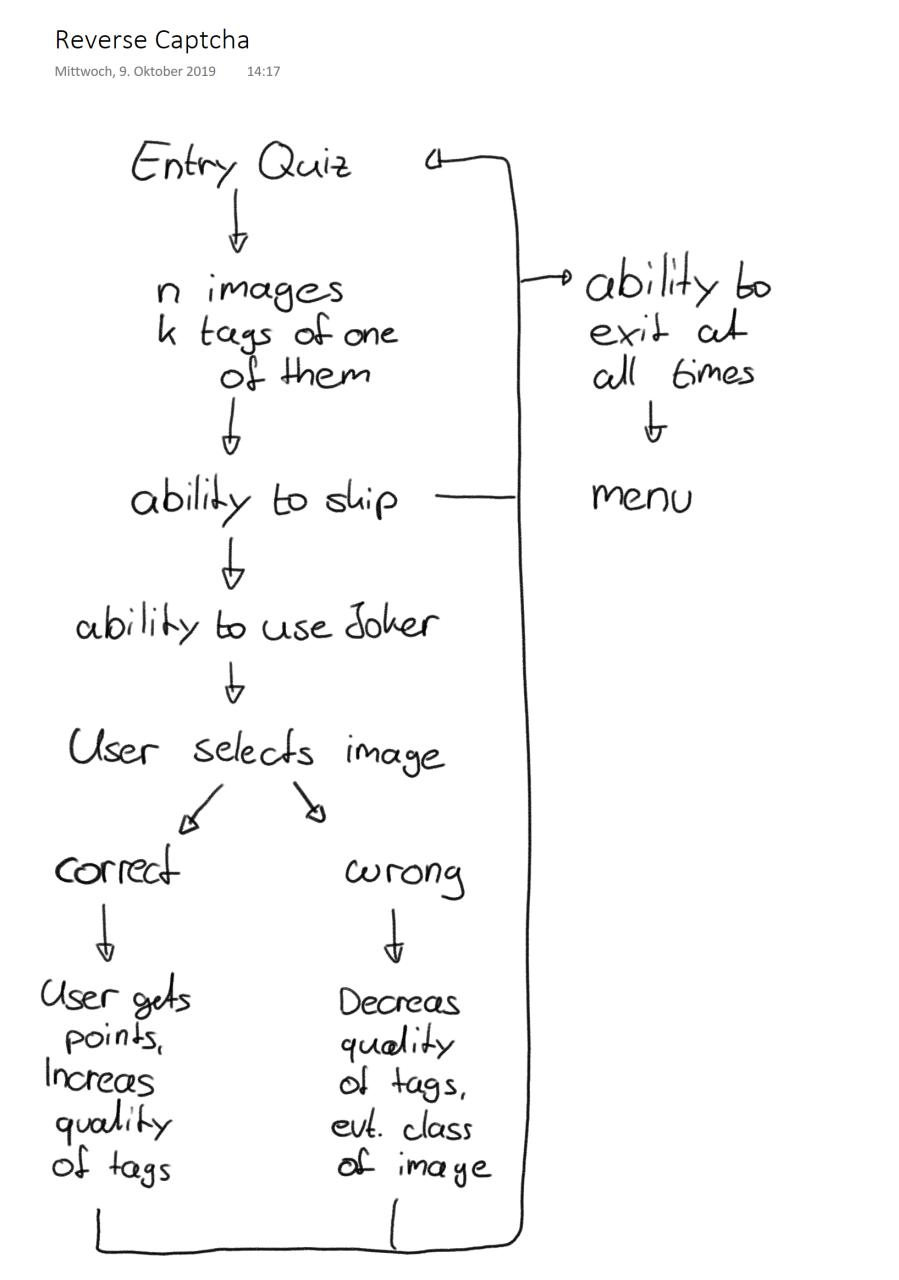 Reverse Captcha
Mittwoch, 9. Oktober 2019 14:17
Entry Quiz
n images
k tags of one
of them
ability to skip
ability to use Joker
User selects image
correct
User gets
points,
Increas
quality
of tags
wrong
Decreas
quality
of tags,
evt. class
of image
ability to
exit at
all times
menu